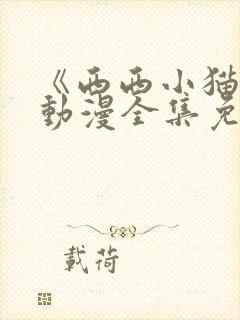 《西西小猫
動漫全集免
載荷